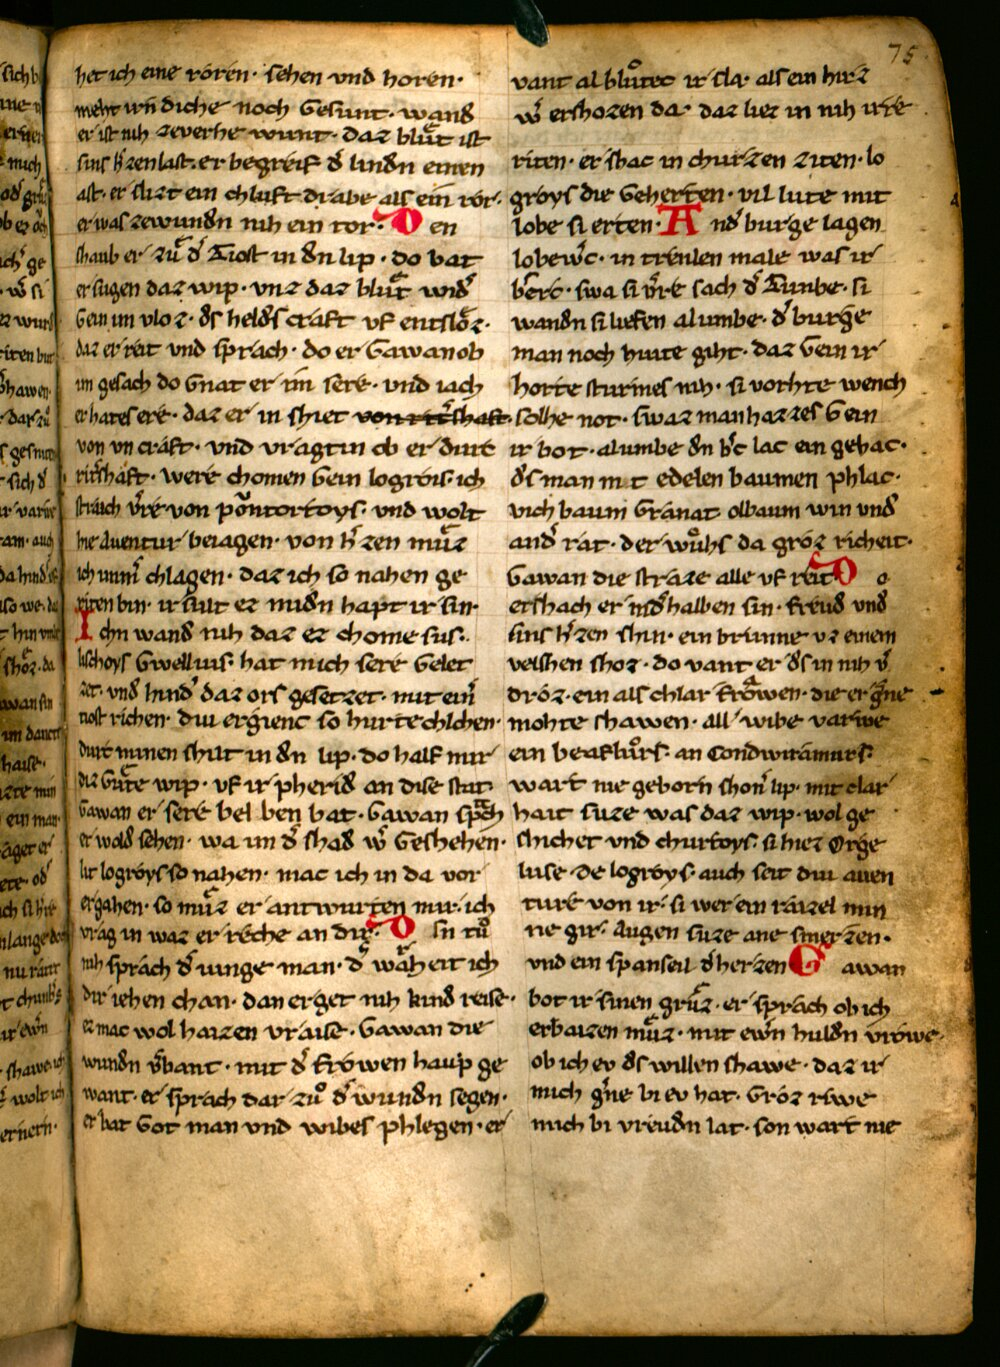 75
het ich eine rören· sehen vnd horen·
meht irn diche noch Gesunt· wand
er ist nih zeverhe wunt· daz blůt ist
sins h̾zenlast· er begreif d̾ lindn einen
ast· er slizt ein chluft drabe als ein ror·
er was zewundn nih ein tor· D en
shaub er zů d̾ Tiost in dn lip· do bat
er sugen daz wip· vnz daz blůt wnd̾
Gein im vloz· ds helds craft vf entsloz·
daz er reit vnd sprach· do er Gawan ob
im gesach do Gnat er im sere· vnd iach
er hates ere· daz er in shiet von rit̾shaft·
von vn craft· vnd vragt in ob er durc
rit̾shaft· were chomen Gein logrois· ich
straich v̾re von pontortoys· vnd wolt
hie Aventur beiagen· von h̾zen můz
ich imm̾ chlagen· daz ich so nahen ge
riten bin· ir sult ez midn hapt ir sin·
Ichn wand nih daz ez chome sus·
lischoys Gwellius· hat mich sere Gelet
zet· vnd hind̾ daz ors gesetzet· mit ein̾
tiost richen· diu ergienc so hurtechlichen·
durc minen shilt in dn lip· do half mir
diz Gůte wip· vf ir pherid an dise stat·
Gawan er sere bel ben bat· Gawan sprach
er wold sehen· wa im d̾ shad w̾ Geshehen·
lit logroys so nahen· mac ich in da vor
ergahen· so můz er antwurten mir· ich
vrag in waz er reche an dir· D sn tů
nih sprach d̾ iunge man· d̾ warheit ich
dir iehen chan· dan erget nih kind reise·
ez mac wol haizen vraise· Gawan die
wundn v̾bant· mit d̾ frowen haup ge
want· er sprach dar zů d̾ wundn segen·
er bat Got man vnd wibes phlegen· er
vant al blůtec ir sla· als ein hirz
w̾ ershozen da· daz liez in nih irre
riten· er shac in churzen ziten· lo
groys die Geherten· vil lute mit
lobe si erten· A nd̾ burge lagen
lobew̾c· in trenlen male was ir
b̾erc· swa si v̾re sach d̾ Tumbe· si
wandn si liefen alumbe· d̾ burge
man noch hiute giht· daz Gein ir
horte sturmes nih· si vorhte wench
solhe not· swaz man hazzes Gein
ir bot· alumbe dn b̾c lac ein gehac·
ds man m t edelen baumen phlac·
vich baum Granat olbaum win vnd
and̾ rat· der wůhs da groz richeit·
Gawan die straze alle vf reit D o
ershach er nid̾halben sin· freud vnd
sins h̾zen shin· ein brunne vz einem
velshen shoz· do vant er ds in nih v̾
droz· ein als chlar frowen· die er g̾ne
mohte shawen· all· wibe varwe
ein beafluors· an Condwiramurs·
wart nie geborn shon̾ lip· mit clar
hait suze was daz wip· wol ge
shichet vnd churtoys· si hiez Orge
luse de logroys· auch seit diu aven
ture von ir· si wer ein raizel min
ne gir· Augen suze ane smerzen·
vnd ein spanseil d̾ herzen G awan
bot ir sinen grůz· er sprach ob ich
erbaizen můz· mit ewn̾ huldn vrowe·
ob ich ev ds willen shawe· daz ir
mich g̾ne bi ev hat· Groz riwe
mich bi vreudn lat· son wart nie